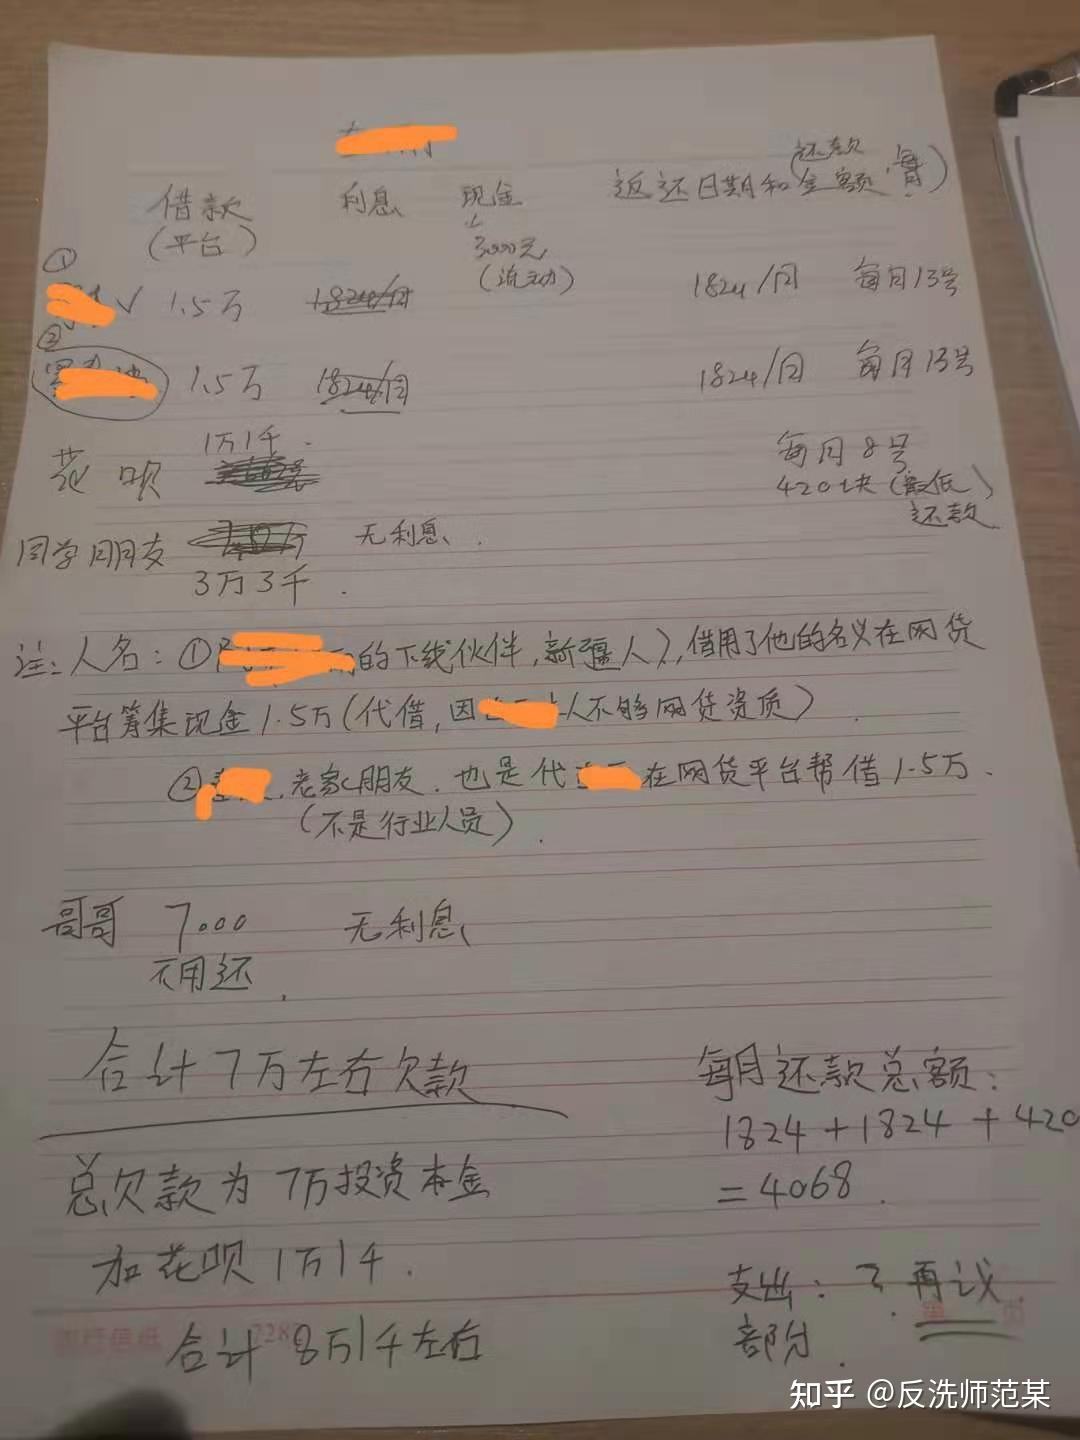 (还款
借款 利息 现金 返还日期和金额,每月)
(平台) 3000元
(流动)
①
√ 1.5万 1824/月 1824/月 每月13号
②
1.5万 1824/月 1824/月 每月13号
1万1千.
花呗 每月8号
420块(最低)
还款
同学朋友 无利息.
3万3千.
注:人名:① 的下线伙伴,新疆人),借用了他的名义在网贷
平台筹集现金1.5万(代借,因 人不够网贷资质).
② 老家朋友.也是代 在网贷平台帮借1.5万.
(不是行业人员).
哥哥 7000 无利息
不用还.
合计7万左右欠款
每月还款总额:
1824+1824+420
=4068.
总欠款为7万投资本金
加花呗1万1千.
合计8万1千左右
支出:?再议
部分.
知乎 @反洗师范某